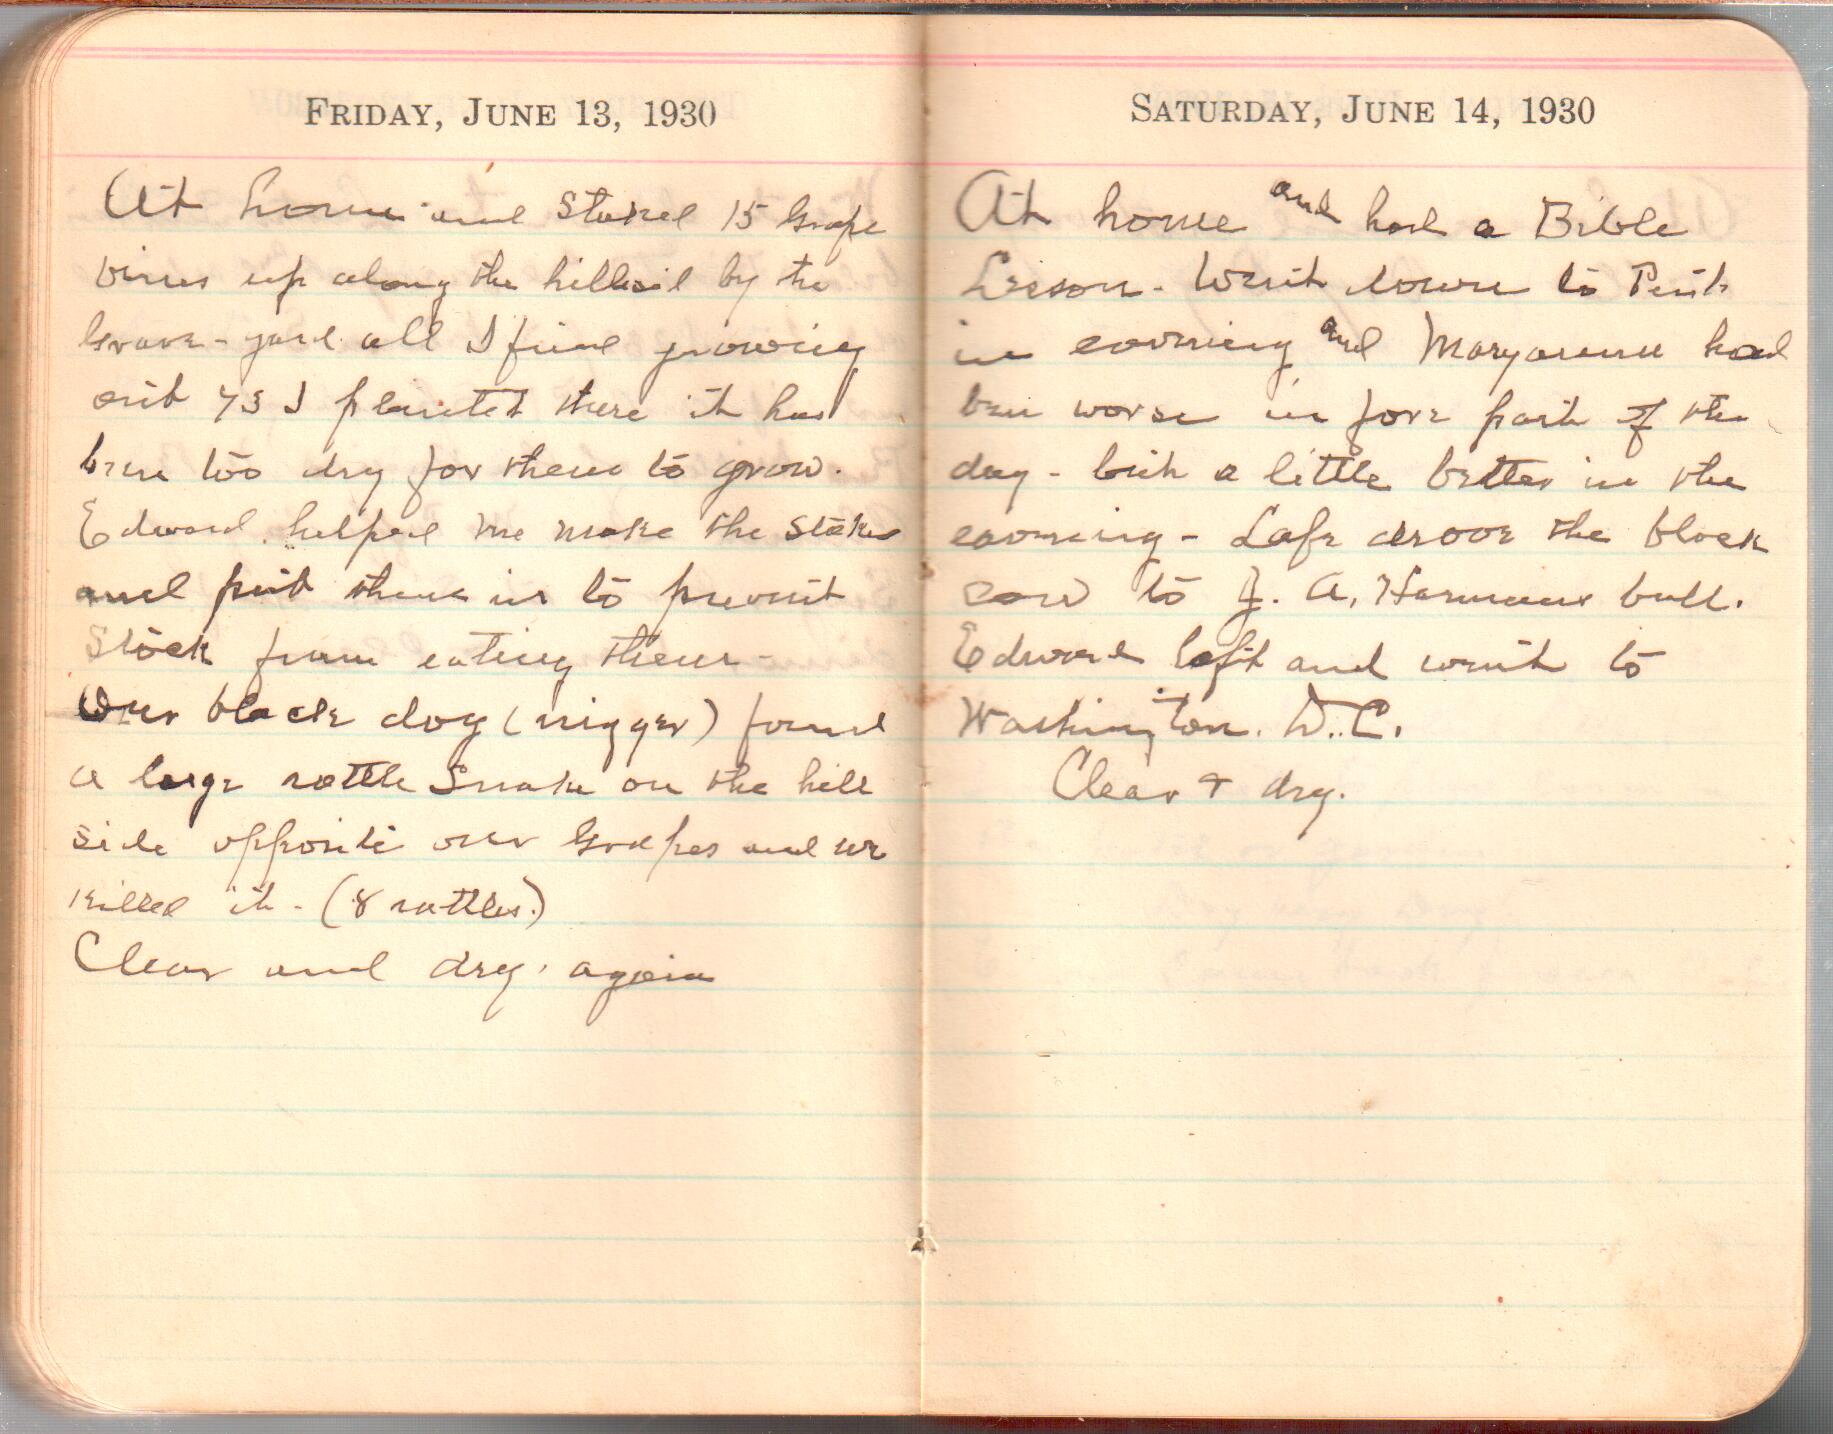 FRIDAY, JUNE 13, 1930
At home and staked 15 Grape
vines up along the hillsid by the
Grave-yard all I find growing
out 73 I planted there it has
been too dry for them to grow.
Edward helped me make the stakes
and put them in to prevent
Stock from eating them-
Our black dog (nigger) found
a large rattle Snake on the hill
side opposite our Grapes and we
killed it - (8 rattles.)
Clear and dry. again
SATURDAY, JUNE 14, 1930
At home and had a Bible
Lesson - Went down to
in evening and Maryanna had
ben worse in fore part of the
day - but a little better in the
evening - Lafe drove the black
cow to J. A. Harmans bull.
Edward left and went to
Washington. D.C.
Clear + dry.